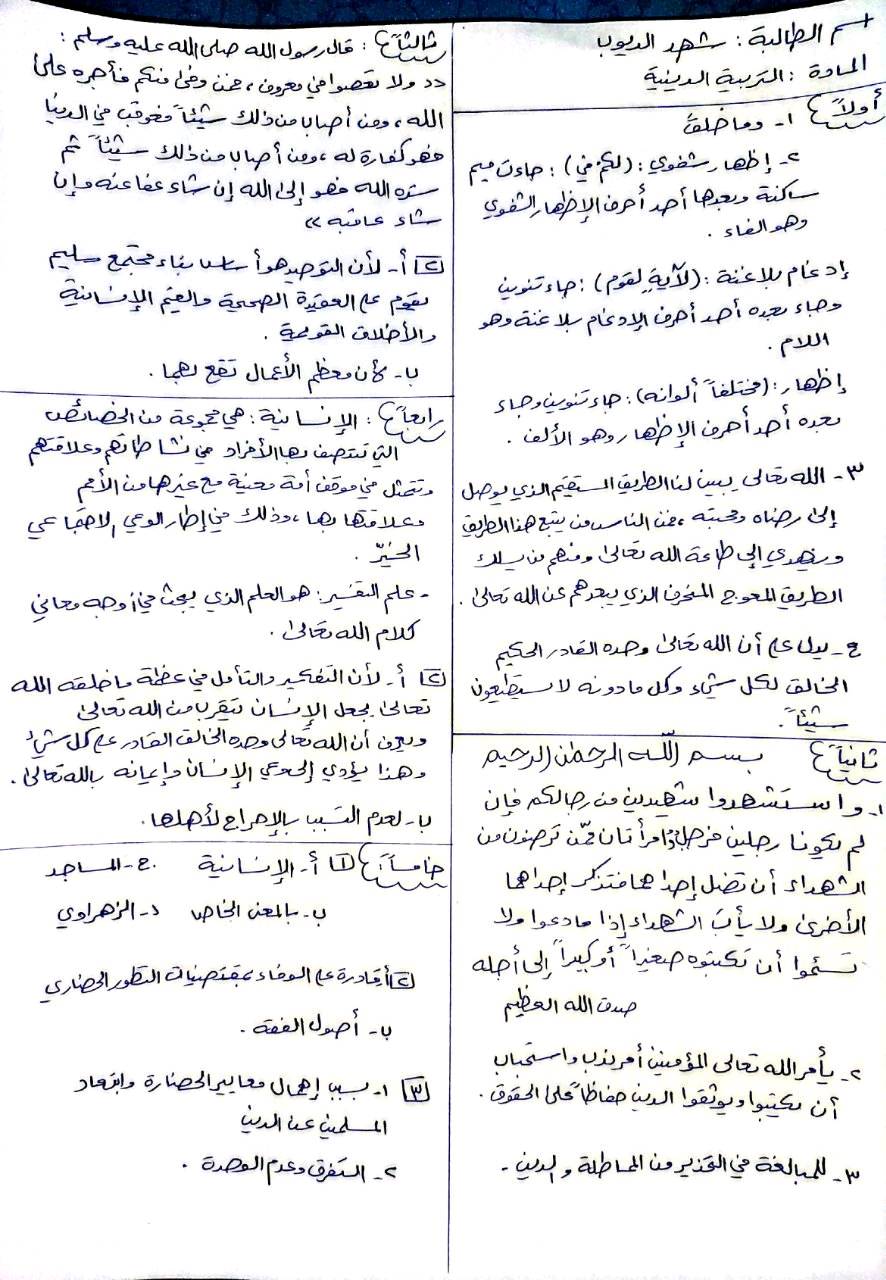 اسم الطالبة : شهد الديوب
المادة : التربية الدينية
أولاً ١- وما خلقَ
٢- إظهار شفوي : (لكم في) : جاءت ميم
ساكنة وبعدها أحد أحرف الإظهار الشفوي
وهو الفاء .
إدغام بلا غنة : (لآيةٍ لقوم) : جاء تنوين
وجاء بعده أحد أحرف الإدغام بلا غنة وهو
اللام .
إظهار : (مختلفاً ألوانه) : جاء تنوين وجاء
بعده أحد أحرف الإظهار وهو الألف .
٣- الله تعالى يبين لنا الطريق المستقيم الذي يوصل
إلى رضاه ومحبته ، فمن الناس من يتبع هذا الطريق
ويهدي إلى طاعة الله تعالى ومنهم من يسلك
الطريق المعوج المنحرف الذي يبعدهم عن الله تعالى .
ع- يدل على أن الله تعالى وحده القادر الحكيم
الخالق لكل شيء وكل ما دونه لا يستطيعون
شيئاً .
ثانياً بسم الله الرحمن الرحيم
١- واستشهدوا شهيدين من رجالكم فإن
لم يكونا رجلين فرجل وامرأتان ممّن ترضون من
الشهداء أن تضل إحداهما فتذكر إحداهما
الأخرى ولا يأبَ الشهداء إذا ما دعوا ولا
تسئموا أن تكتبوه صغيراً أو كبيراً إلى أجله
صدق الله العظيم
٢- يأمر الله تعالى المؤمنين أمر ندب واستحباب
أن يكتبوا ويوثقوا الدين حفاظاً على الحقوق .
٣- للمبالغة في التحذير من المماطلة والدين .
ثالثاً : قال رسول الله صلى الله عليه وسلم :
«ولا تعصوا في معروف ، فمن وفى منكم فأجره على
الله ، ومن أصابا من ذلك شيئاً فعوقب في الدنيا
فهو كفارة له ، ومن أصابا من ذلك شيئاً ثم
ستره الله فهو إلى الله إن شاء عفا عنه وإن
شاء عاقبه»
٢ أ- لأن التوحيد هو أساس بناء مجتمع سليم
يقوم على العقيدة الصحيحة والقيم الإنسانية
والأخلاق القويمة .
ب- لأن معظم الأعمال تقع بهما .
رابعاً : الإنسانية : هي مجموعة من الخصائص
التي تتصف بها الأفراد في نشاطاتهم وعلاقتهم
وتتمثل في موقف أمة معنية مع غيرها من الأمم
وعلاقتها بها ، وذلك في إطار الوعي الاجتماعي
الخيّر .
- علم التفسير : هو العلم الذي يبحث في أوجه معاني
كلام الله تعالى .
٢ أ- لأن التفكير والتأمل في عظمة ما خلقه الله
تعالى يجعل الإنسان يتقرب من الله تعالى
ويعرف أن الله تعالى وحده الخالق القادر على كل شيء
وهذا يؤدي إلى وعي الإنسان وإيمانه بالله تعالى .
ب- لعدم التسبب بالإحراج لأهلها .
خامساً : ١ أ- الإنسانية ج- المساجد
ب- بالمعنى الخاص د- الزهراوي
٢ أ- قادرة على الوفاء بمقتضيات التطور الحضاري
ب- أصول الفقه .
٣ ١- بسبب إهمال معايير الحضارة وابتعاد
المسلمين عن الدين
٢- التفرق وعدم الوحدة .